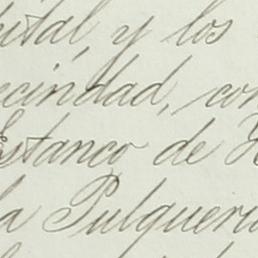 pital, y los
ecindad, con
Estanco de
la Pulquería